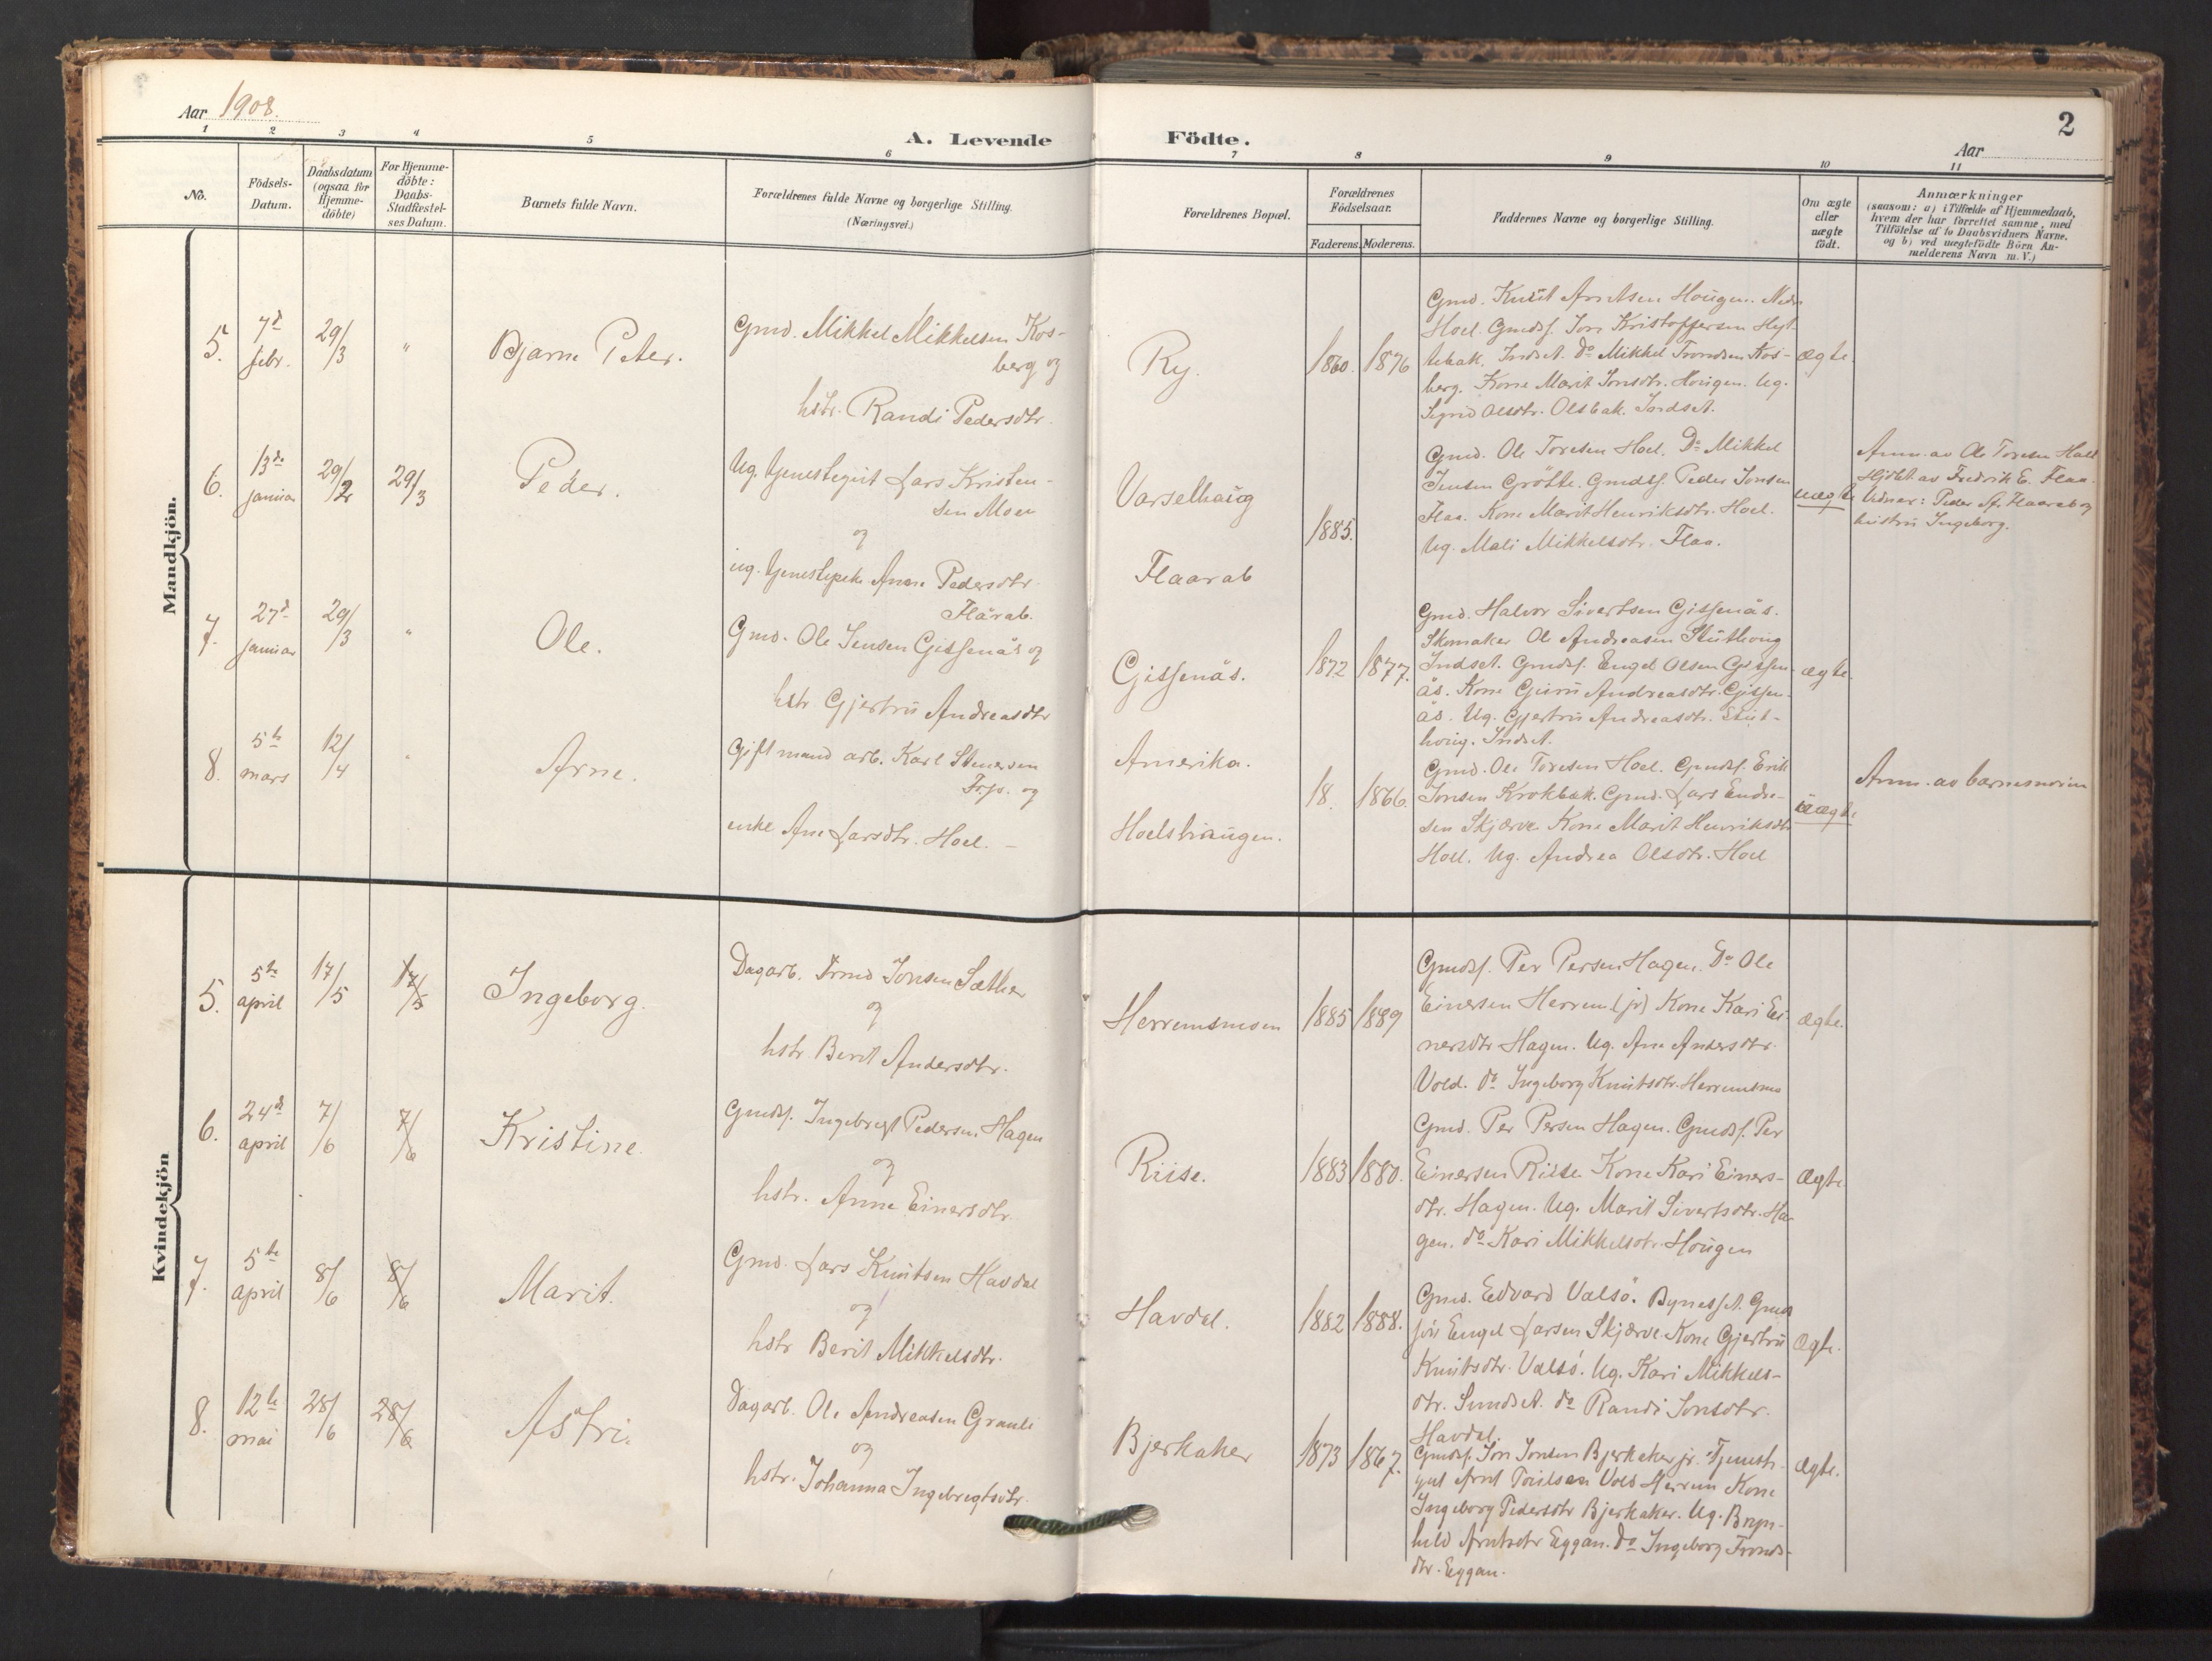 Aar 1908.
A. Levende Födte.
Aar
2
1 2 3 4 5 6 7 8 9 10 11
No.
Födsels-
Datum.
Daabsdatum
(ogsaa for
Hjemme-
döbte)
For Hjemme-
döbte:
Daabs-
Stadfæstel-
ses Datum.
Barnets fulde Navn.
Forældrenes fulde Navne og borgerlige Stilling.
(Næringsvei.)
Forældrenes Bopæl.
Forældrenes
Födselsaar.
Faderens. Moderens.
Faddernes Navne og borgerlige Stilling.
Om ægte
eller
uægte
födt.
Anmærkninger
(saasom: a) i Tilfælde af Hjemmedaab,
hvem der har forrettet samme, med
Tilföielse af to Daabsvidners Navne,
og b) ved uægtefödte Börn An-
melderens Navn m.V.)
Mandkjön.
5.
7d
febr.
29/3
"
Bjarne Peter.
Gmd. Mikkel Mikkelsen Kos-
berg og
hstr. Randi Pedersdtr.
Ry.
1860. 1876
Gmd. Knut Arntsen Hougen. Nedr
Hoel. Gmdsf. Jon Kristoffersen Hyt-
tebak. Indset. Do Mikkel Trondsen Kos-
berg. Kone Marit Jonsdtr. Hougen. Ug.
Sigrid Olsdtr. Olsbak. Indset.
ægte.
6.
13de
januar
29/2
29/3
Peder.
Ug. tjenestegut Lars Kristen-
sen Moen
og
ug. tjenestepike Anne Pedersdtr.
Flårab.
Varselhaug
Flaarab
1885.
Gmd. Ole Toresen Hoel. Do Mikkel
Jensen Grötte. Gmdsf. Peder Jonsen
Flaa. Kone Marit Henriksdtr. Hoel.
Ug. Mali Mikkelsdtr. Flaa.
uægte
Anm. av Ole Toresen Hoel
Hjdbt. av Fredrik E. Flaa.
Vidner: Peder Flaarab og
hustru Ingeborg.
7.
27d
januar
29/3
"
Ole.
Gmd. Ole Jensen Gissenäs og
hstr Gjertru Andreasdtr
Gissenäs.
1872 1877.
Gmd. Halvor Sivertsen Gissenäs.
Skomaker Ole Andreasen Sluthoug
Indset. Gmdsf. Engel Olsen Gissen-
äs. Kone Guru Andreasdtr. Gissen-
äs. Ug. Gjertru Andreasdtr. Slut-
houg. Indset.
ægte.
8.
5te
mars
12/4
"
Arne.
Gift mand arb. Karl Stenersen
og
enke Ane Larsdtr. Hoel. –
Amerika.
Hoelshaugen.
18 . 1866.
Gmd. Ole Toresen Hoel. Gmdsf. Erik
Jonsen Krokbæk. Gmd. Lars Endre-
sen Skjærve. Kone Marit Henriksdtr
Hoel. Ug. Andrea Olsdtr. Hoel
uægte
Anm. av barnemoren
Kvindekjön
5.
5te
april
17/5
17/5
Ingeborg.
Dagarb. Trond Jonsen Sæther
og
hstr. Berit Andersdtr.
Herremsmoen
1885 1889
Gmdsf. Per Persen Hagen. Do Ole
Einersen Herrem (jr) Kone Kari Ei-
nersdtr Hagen. Ug. Ane Andersdtr.
Vold. do Ingeborg Knutsdtr. Herremsmo
ægte.
6.
24d
april
7/6
7/6
Kristine
Gmdsf. Ingebregt Pedersen Hagen
og
hstr. Anne Einersdtr.
Riise.
1883 1880.
Gmd. Per Persen Hagen. Gmdsf. Per
Einersen Riise. Kone Kari Einers-
dtr. Hagen. Ug. Marit Sivertsdtr. Ha-
gen. do Kari Mikkelsdtr. Hougen
Ægte.
7.
5te
april
8/6
8/6
Marit.
Gmd. Lars Knutsen Havdal
og
hstr Berit Mikkelsdtr.
Havdal.
1882 1888.
Gmd. Edvard Valsö. Bynesset. Gmds
sön Engel Larsen Skjærve. Kone Gjertru
Knutsdtr. Valsö. Ug. Kari Mikkels-
dtr. Sundset. do Randi Jonsdtr.
Havdal.
Ægte.
8.
12te
mai
28/6
28/6
Astri.
Dagarb. Ole Andreasen Granli
og
hstr. Johanna Ingebregtsdtr.
Bjerkaker
1873 1867.
Gmdsf. Jon Jonsen Bjerkaker jr. Tjeneste-
gut Arnt Vold Herrem Kone
Ingeborg Pedersdtr Bjerkaker. Ug. Bryn-
hild Arntsdtr Eggan. do Ingeborg Tronds-
dtr. Eggan.
Ægte.